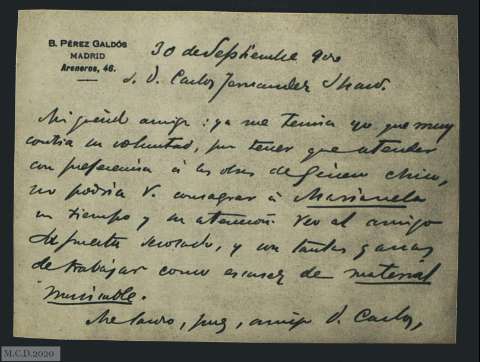 B. PÉREZ GALDÓS
MADRID
Areneros, 46.
30 de Septiembre 900
S. D. Carlos Fernandez Shaw.
Mi querido amigo: ya me temia yo que muy
contra su voluntad, por tener que atender
con preferencia á las obras de género chico,
no podria V. consagrar á Marianela
su tiempo y su atención. Veo al amigo
de trabajar como escasez de material
musicable.
pues, amigo D. Carlos,
M.C.D.2020